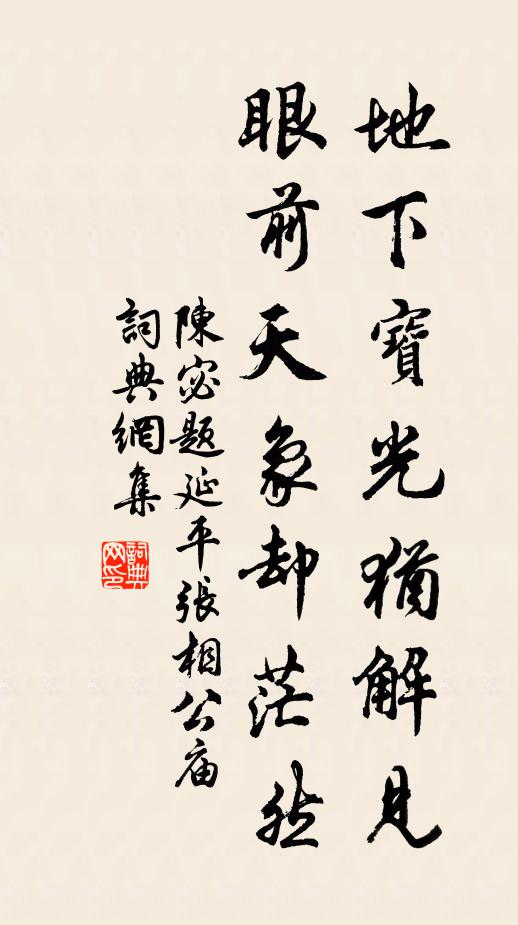 地下寶光猶解見
眼前天象却茫然
陳宓題延平張相公庙
詞典網集
詞典网印